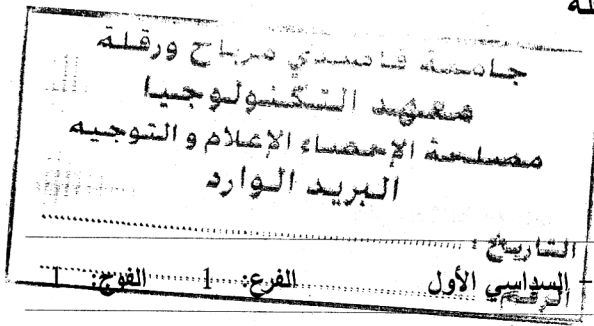 لة
جامعة قاصدي مرباح ورقلة
معهد التكنولوجيا
مصلحة الإحصاء الإعلام و التوجيه
البريد الوارد
التاريخ :
السداسي الأول الفرع: 1 الفوج: 1
الرقم